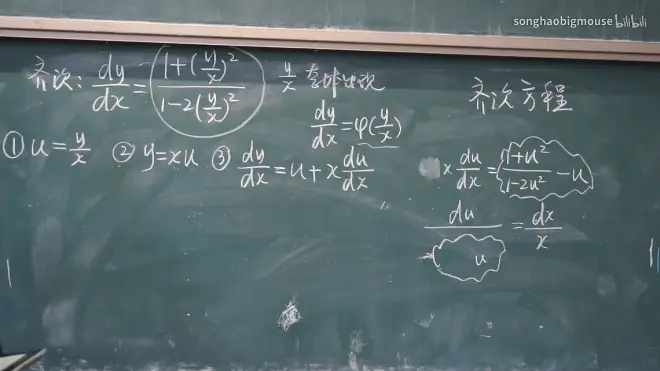 songhaobigmouse bilibili
齐次: dy/dx = (1+(y/x)²)/(1-2(y/x)²) y/x 整体出现
齐次方程
dy/dx = φ(y/x)
① u = y/x ② y = xu ③ dy/dx = u + x du/dx
x du/dx = (1+u²)/(1-2u²) - u
du/u = dx/x